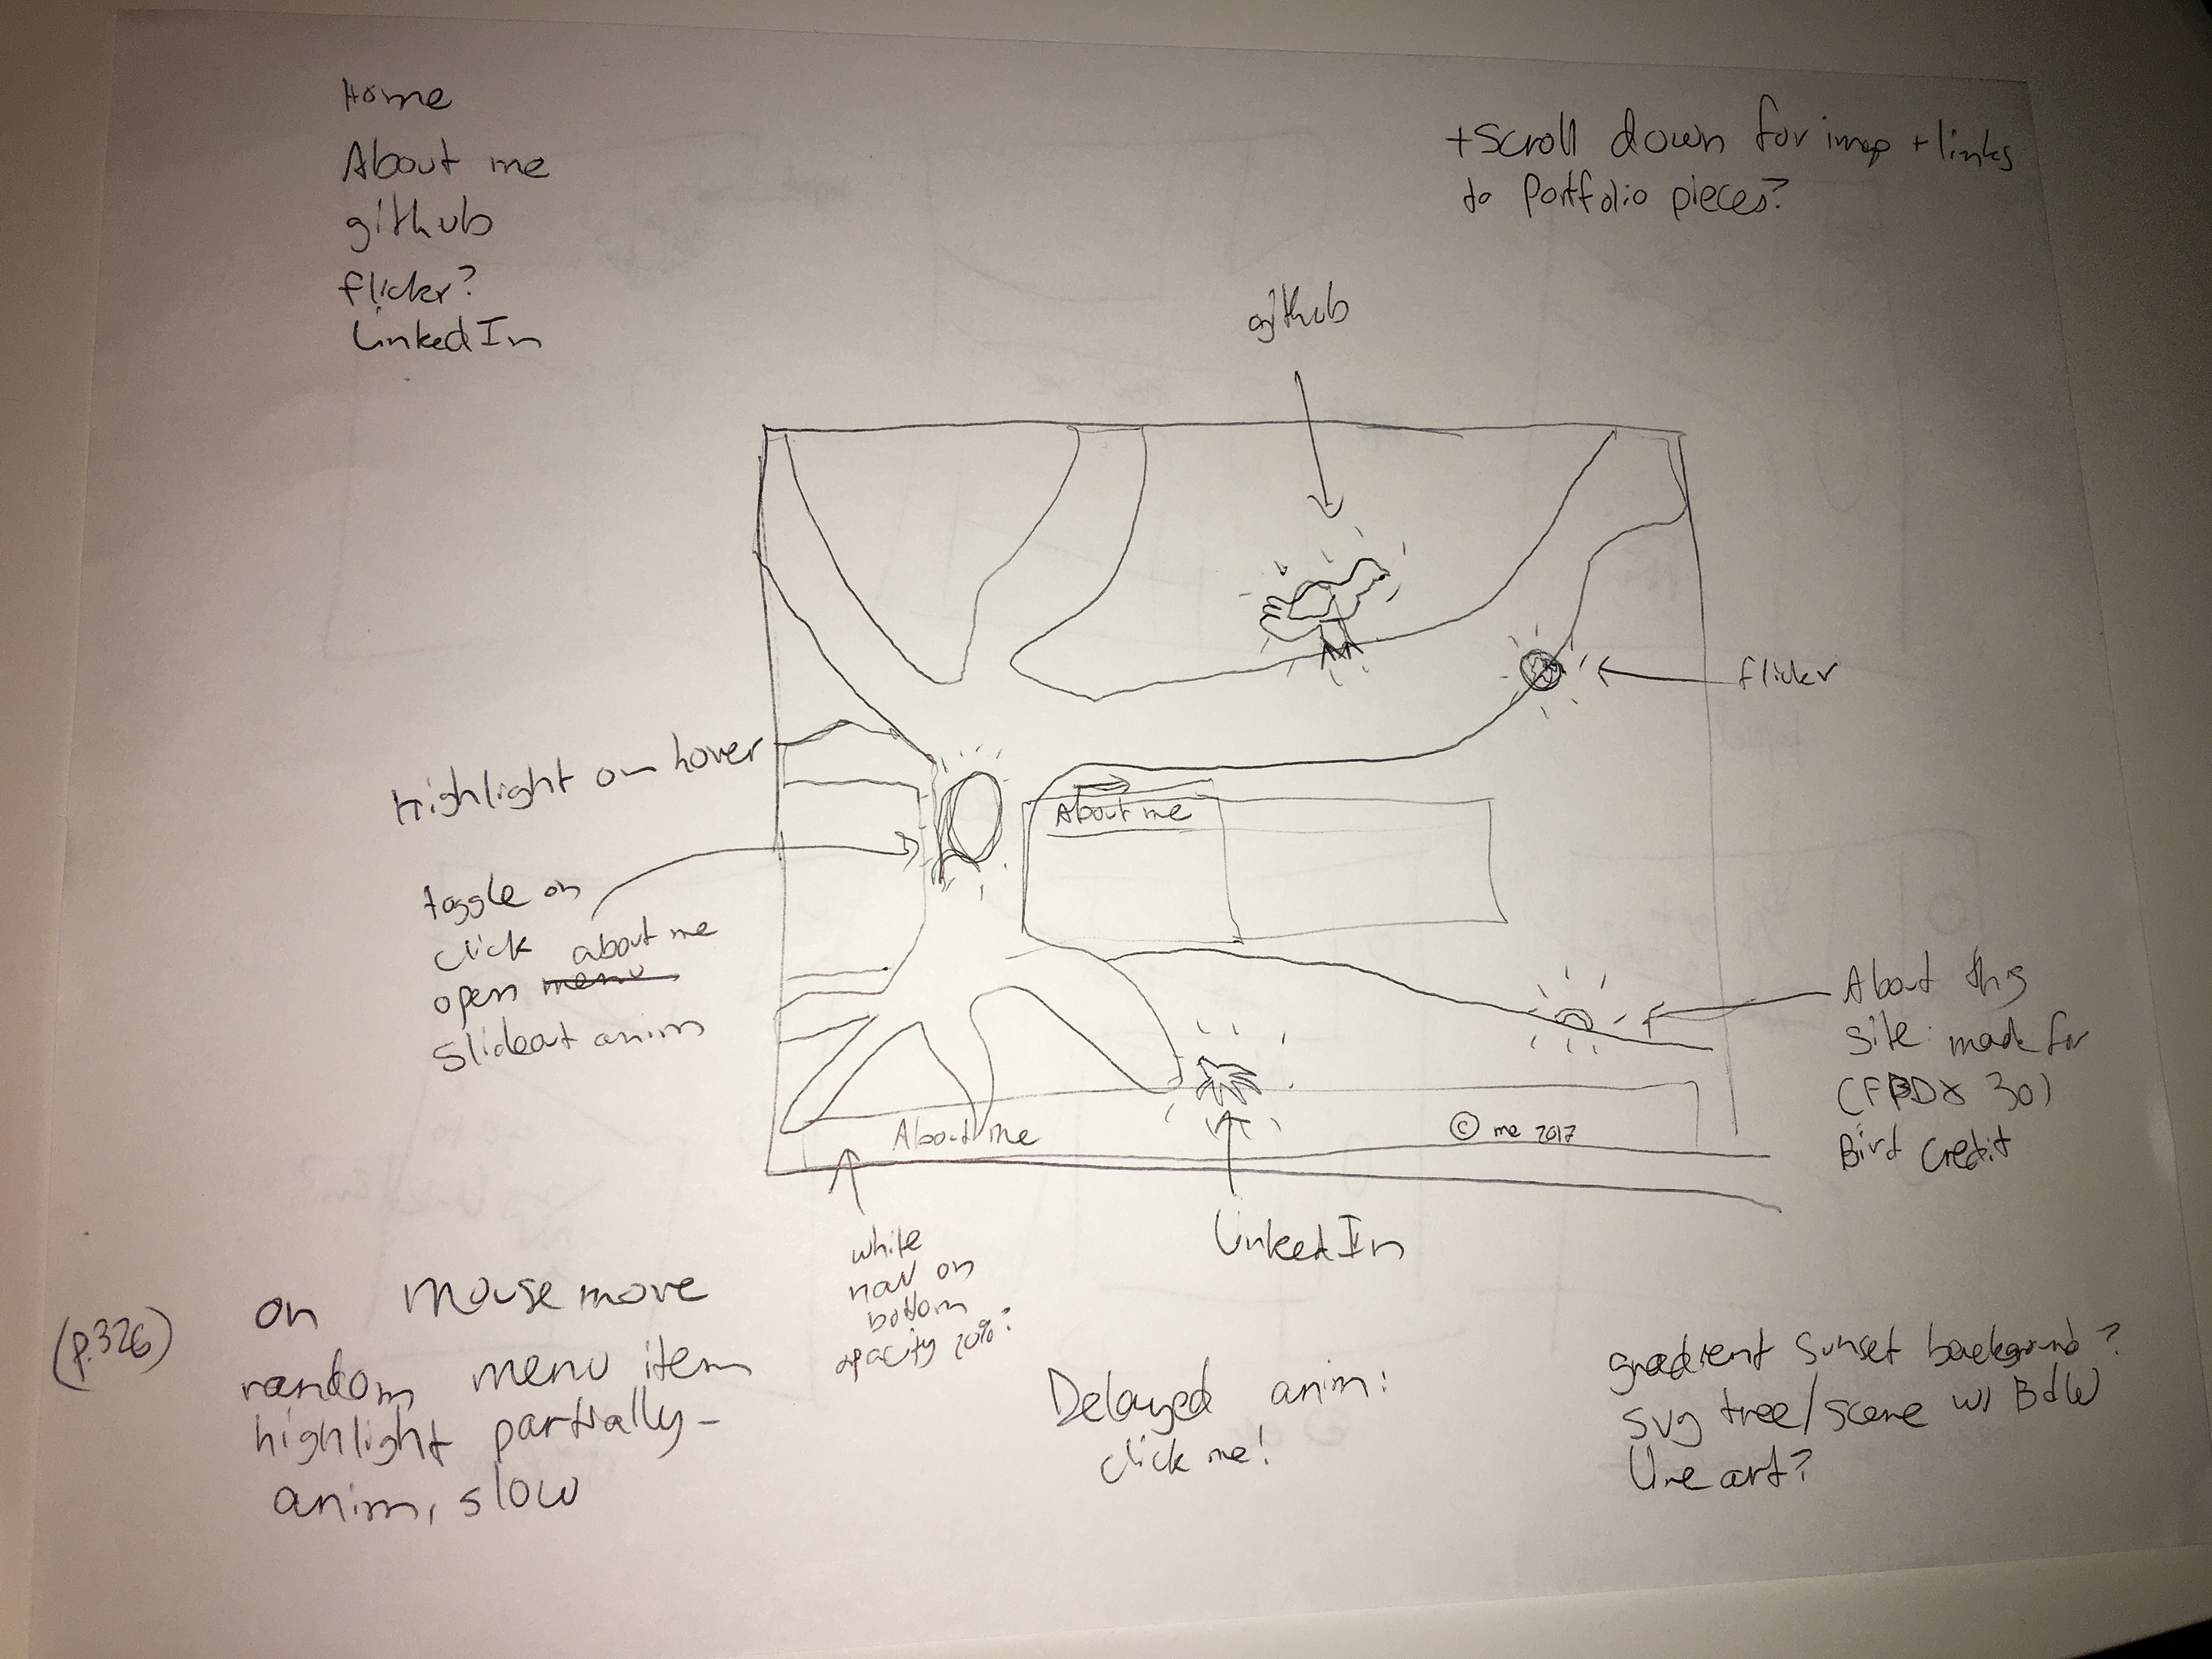 Home
About me
github
flickr?
LinkedIn
+Scroll down for imgs + links
to portfolio pieces?
github
flickr
Highlight on hover
toggle on
click about me
open menu
slideout anim
About me
About this
site: made for
Bird Credit
About me
© me 2017
LinkedIn
white
nav on
bottom
opacity 20%?
(p.326)
on mouse move
random menu item
highlight partially-
anim, slow
Delayed anim:
click me!
gradient sunset background?
svg tree/scene w/ B&W
line art?